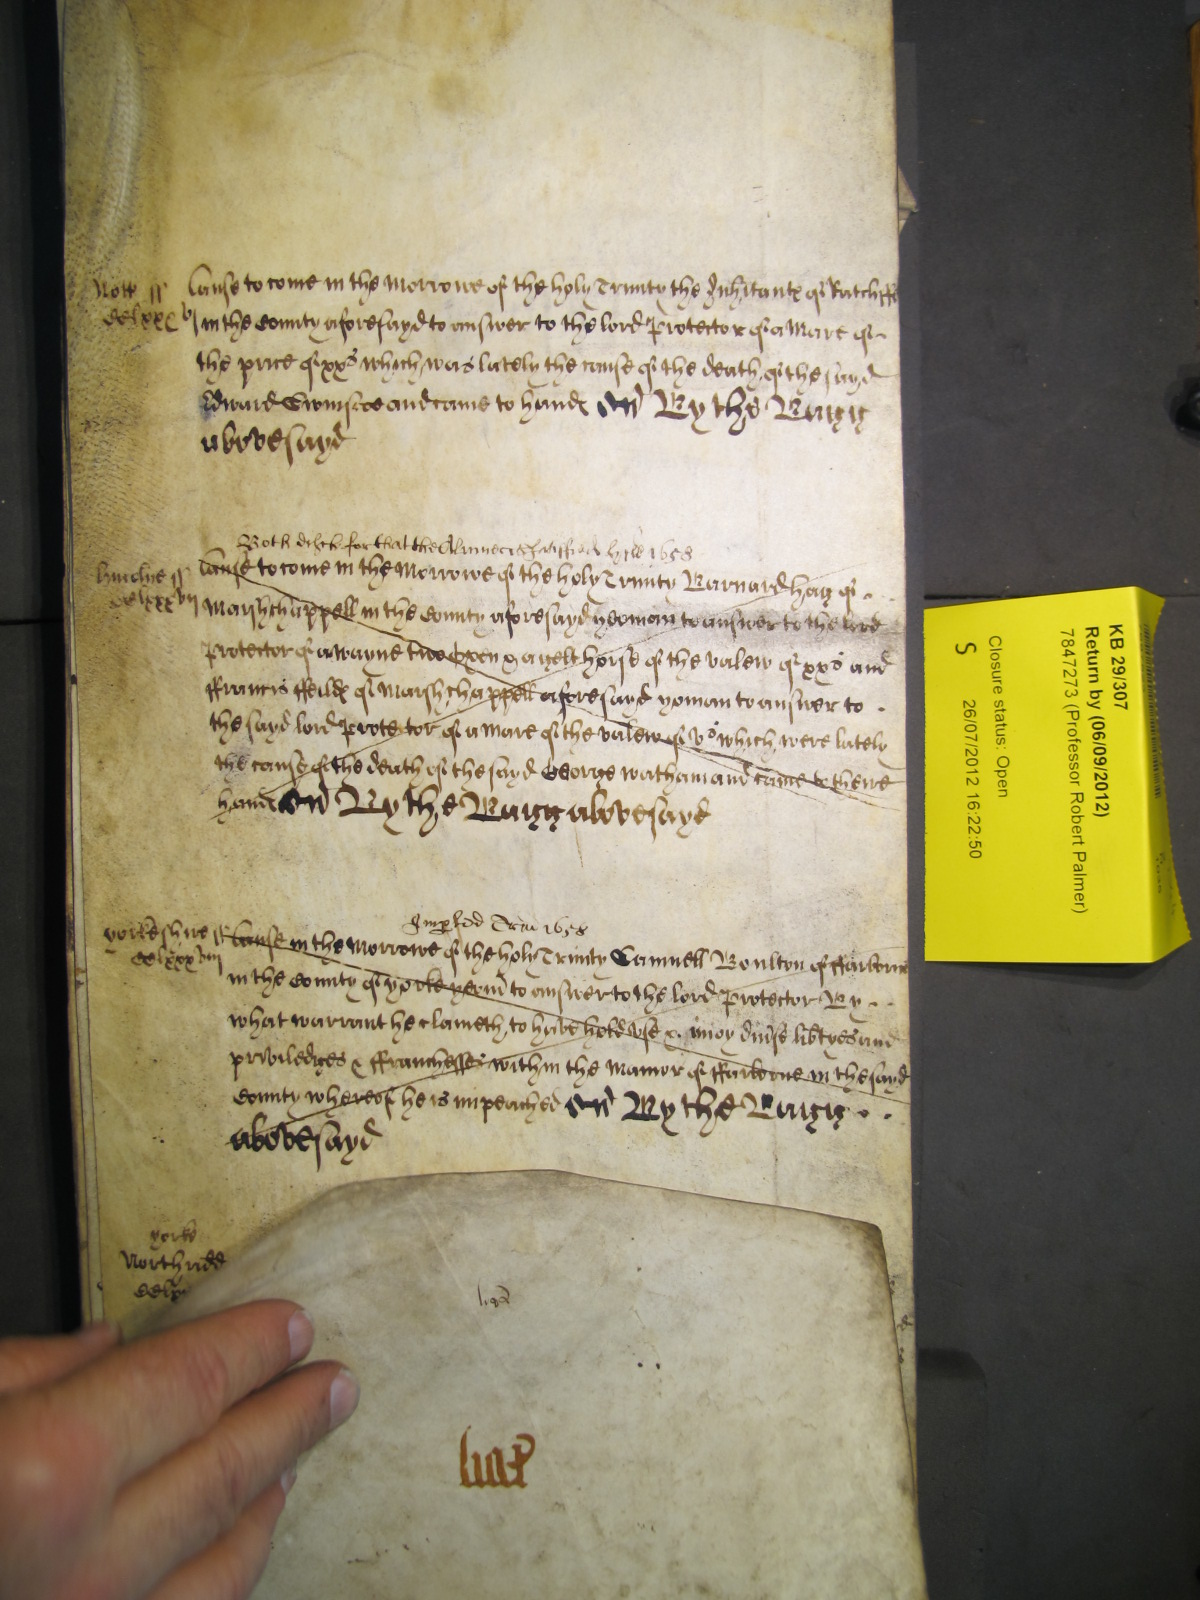 Nott ss Cause to come in the Morrowe of the holy Trinity the Inhitants of Ratcliffe
CClxxxvj in the County aforesayd to answer to the lord Protector of a Mare of
the price of xxs which was lately the cause of the death of the sayd
Edward and came to hands By the Bagg
abovesayd
Both for that the 1658
ss Cause to come in the Morrowe of the holy Trinity Barnard hag of
CClxxxvij Marshchappell in the County aforesayd yeoman to answer to the lord
Protector of a wayne two Oxen & a gelt horse of the valew of xxs and
ffrancis ffeilds of Marshchappell aforesayd yoman to answer to
the sayd lord Protector of a Mare of the valew of vs which were lately
the cause of the death of the sayd George watham and came to there
hands By the Bagg abovesayd
Trin 1658
yorkeshire ss Cause in the Morrowe of the holy Trinity Camnell Boulton of ffarborne
CClxxxviij in the County of yorke to answer to the lord Protector By
what warrant he clameth to have hold use & inioy divse libtyes and
priviledges & ffranchesses within the Mannor of ffarborne in the sayd
County whereof he is impeached By the Bagg
abovesayd
yorks
Northridd
KB 29/307
Return by (06/09/2012)
7847273 (Professor Robert Palmer)
Closure status: Open
26/07/2012 16:22:50
S